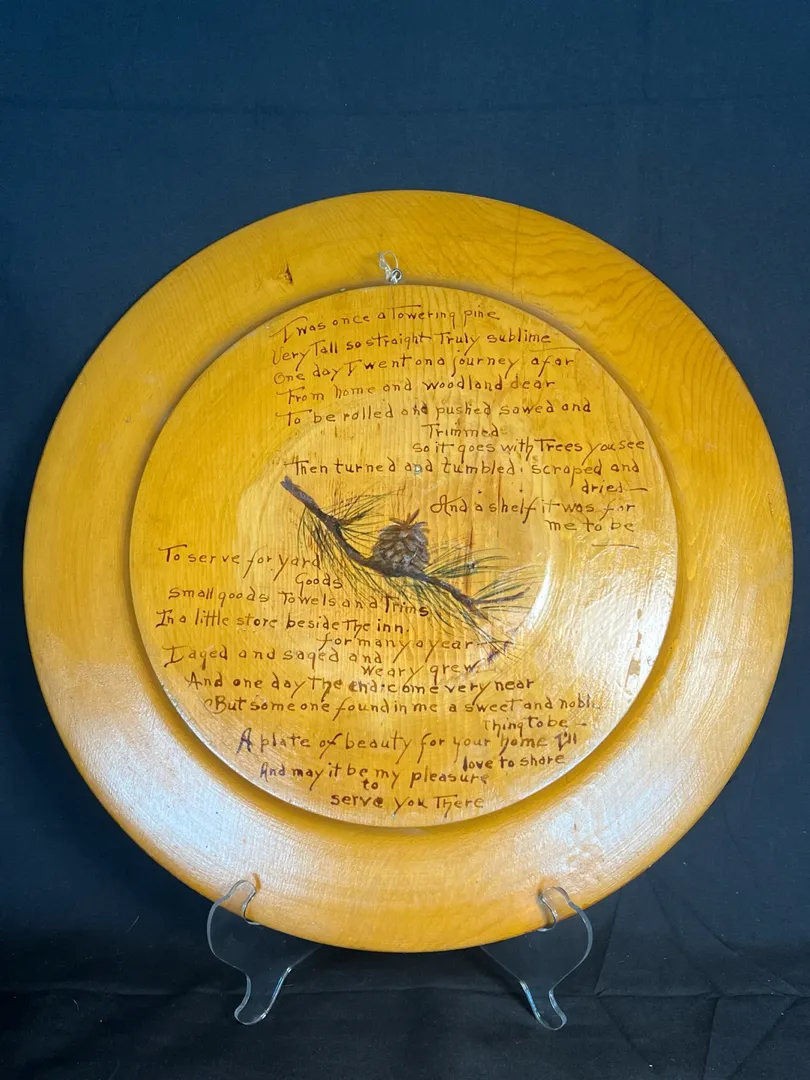 I was once a Towering pine
Very Tall so straight Truly sublime
One day I went on a journey afar
From home and woodland dear
To be rolled and pushed sawed and
Trimmed
so it goes with Trees you see
Then turned and tumbled scraped and
dried—
And a shelf it was for
me to be
To serve for yard
Goods
small goods Towels and Trims
In a little store beside The inn.
for many a year—
I aged and sagged and
weary grew.
And one day The end come very near
But some one found in me a sweet and noble
Thing to be—
A plate of beauty for your home I'll
love to share
And may it be my pleasure
to
serve you There